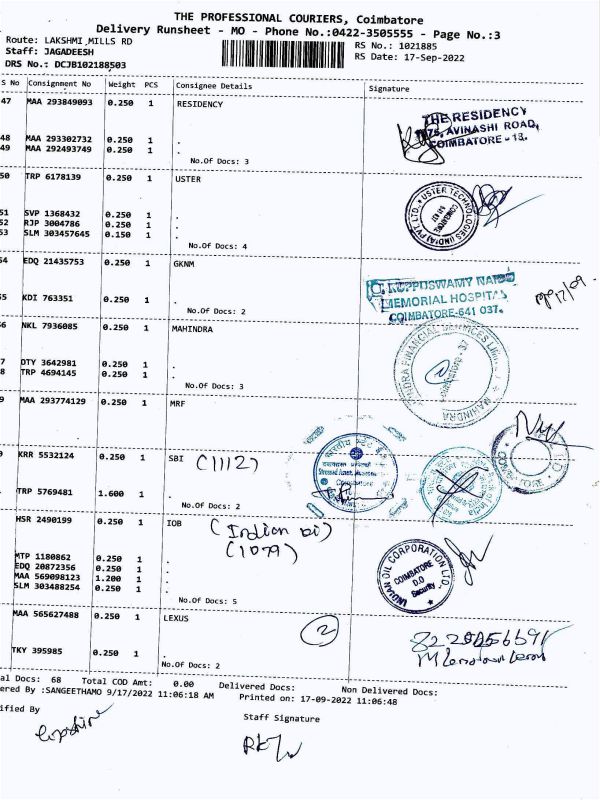 THE PROFESSIONAL COURIERS, Coimbatore
Delivery Runsheet - MO - Phone No.:0422-3505555 - Page No.:3
Route: LAKSHMI MILLS RD
Staff: JAGADEESH
DRS No.: DCJB102188503
RS No.: 1021885
RS Date: 17-Sep-2022
S No Consignment No Weight PCS Consignee Details Signature
47 MAA 293849093 0.250 1 RESIDENCY
THE RESIDENCY
1075, AVINASHI ROAD,
COIMBATORE - 18.
48 MAA 293302732 0.250 1 .
49 MAA 292493749 0.250 1 .
No.Of Docs: 3
50 TRP 6178139 0.250 1 USTER
USTER TECHNOLOGIES (INDIA) PVT LTD.
COIMBATORE
51 SVP 1368432 0.250 1 .
52 RJP 3004786 0.250 1 .
53 SLM 303457645 0.150 1 .
No.Of Docs: 4
54 EDQ 21435753 0.250 1 GKNM
G. KUPPUSWAMY NAIDU
MEMORIAL HOSPITAL
COIMBATORE-641 037.
17/09
55 KDI 763351 0.250 1 .
No.Of Docs: 2
56 NKL 7936085 0.250 1 MAHINDRA
MAHINDRA FINANCIAL SERVICES LIMITED
57 DTY 3642981 0.250 1 .
58 TRP 4694145 0.250 1 .
No.Of Docs: 3
59 MAA 293774129 0.250 1 MRF
KRR 5532124 0.250 1 SBI (1112)
Coimbatore
TRP 5769481 1.600 1 .
No.Of Docs: 2
HSR 2490199 0.250 1 IOB (Indian oil)
(1079)
INDIAN OIL CORPORATION LTD.
COIMBATORE
D.O
Security
MTP 1180862 0.250 1 .
EDQ 20872356 0.250 1 .
MAA 569098123 1.200 1 .
SLM 303488254 0.250 1 .
No.Of Docs: 5
MAA 565627488 0.250 1 LEXUS
2
TKY 395985 0.250 1 .
No.Of Docs: 2
al Docs: 68 Total COD Amt: 0.00 Delivered Docs: Non Delivered Docs:
ered By :SANGEETHAMO 9/17/2022 11:06:18 AM Printed on: 17-09-2022 11:06:48
ified By
Staff Signature